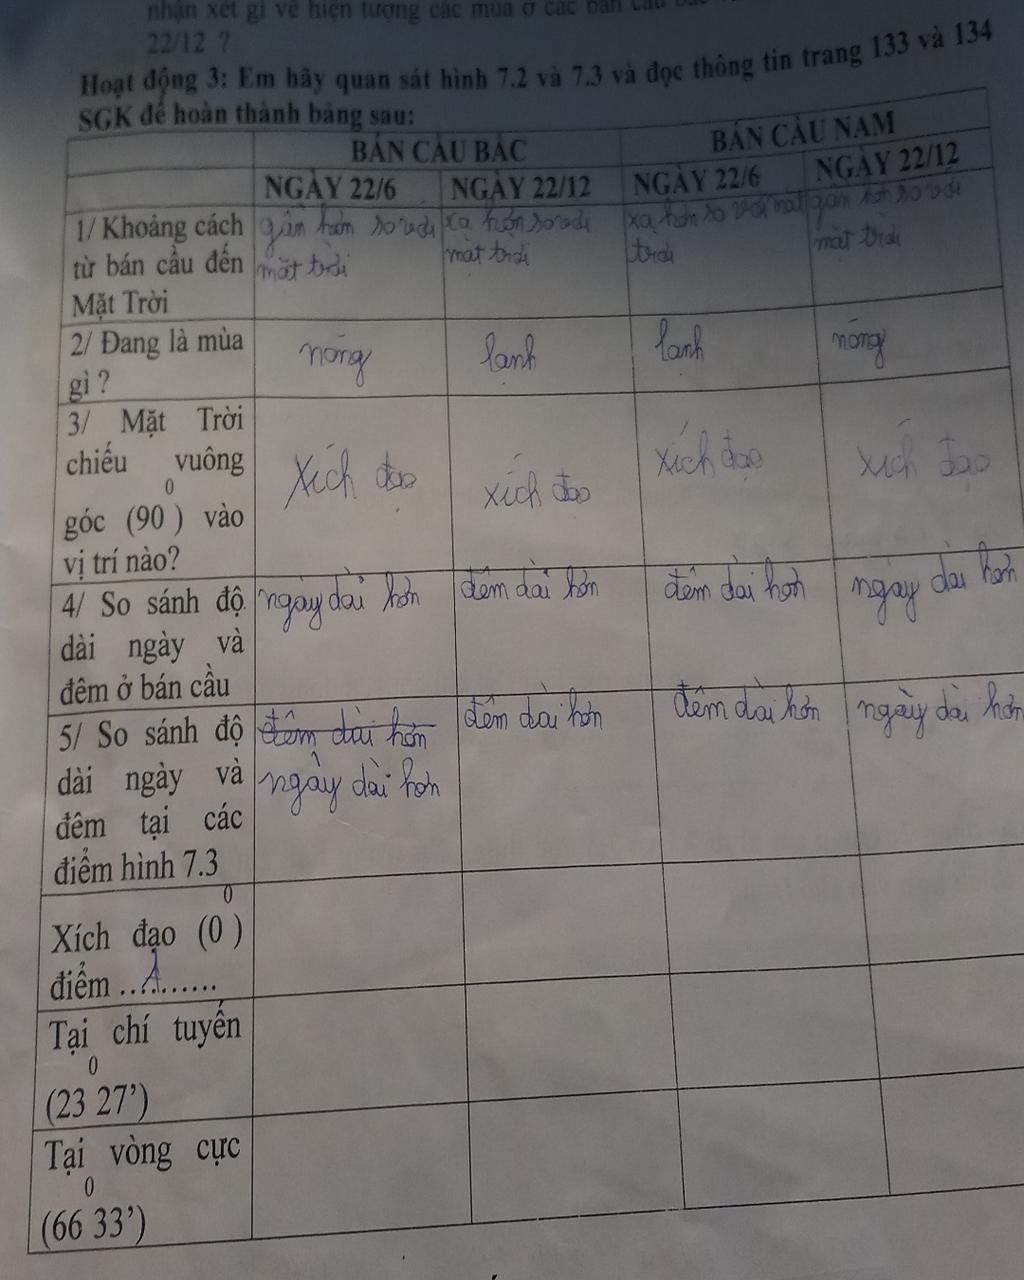 nhận xét gì về hiện tượng các mùa ở các bán cầu
22/12 ?
Hoạt động 3: Em hãy quan sát hình 7.2 và 7.3 và đọc thông tin trang 133 và 134
SGK để hoàn thành bảng sau:
BÁN CẦU BẮC BÁN CẦU NAM
NGÀY 22/6 NGÀY 22/12 NGÀY 22/6 NGÀY 22/12
1/ Khoảng cách gần hơn so với xa hơn so với xa hơn so với mặt gần hơn so với
từ bán cầu đến mặt trời mặt trời trời mặt trời
Mặt Trời
2/ Đang là mùa nóng lạnh lạnh nóng
gì ?
3/ Mặt Trời
chiếu vuông xích đạo xích đạo xích đạo xích đạo
0
góc (90 ) vào
vị trí nào?
4/ So sánh độ ngày dài hơn đêm dài hơn đêm dài hơn ngày dài hơn
dài ngày và
đêm ở bán cầu
5/ So sánh độ đêm dài hơn đêm dài hơn đêm dài hơn ngày dài hơn
dài ngày và ngày dài hơn
đêm tại các
điểm hình 7.3
0
Xích đạo (0 )
điểm ..A........
Tại chí tuyến
0
(23 27’)
Tại vòng cực
0
(66 33’)